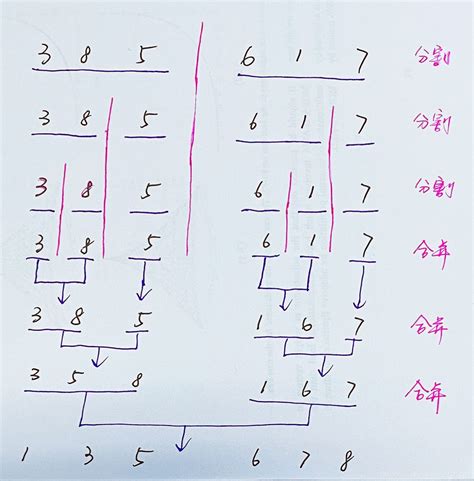 3 8 5 6 1 7 分割
3 8 5 6 1 7 分割
3 8 5 6 1 7 分割
3 8 5 6 1 7 合并
3 8 5 1 6 7 合并
3 5 8 1 6 7 合并
1 3 5 6 7 8